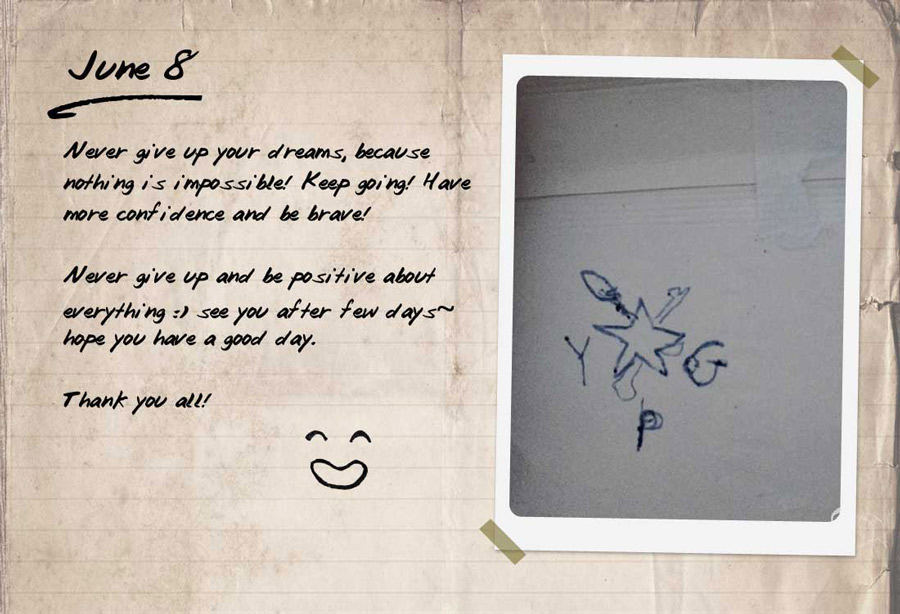 June 8
Never give up your dreams, because
nothing is impossible! Keep going! Have
more confidence and be brave!
Never give up and be positive about
everything :) see you after few days~
hope you have a good day.
Thank you all!
Y
G
P